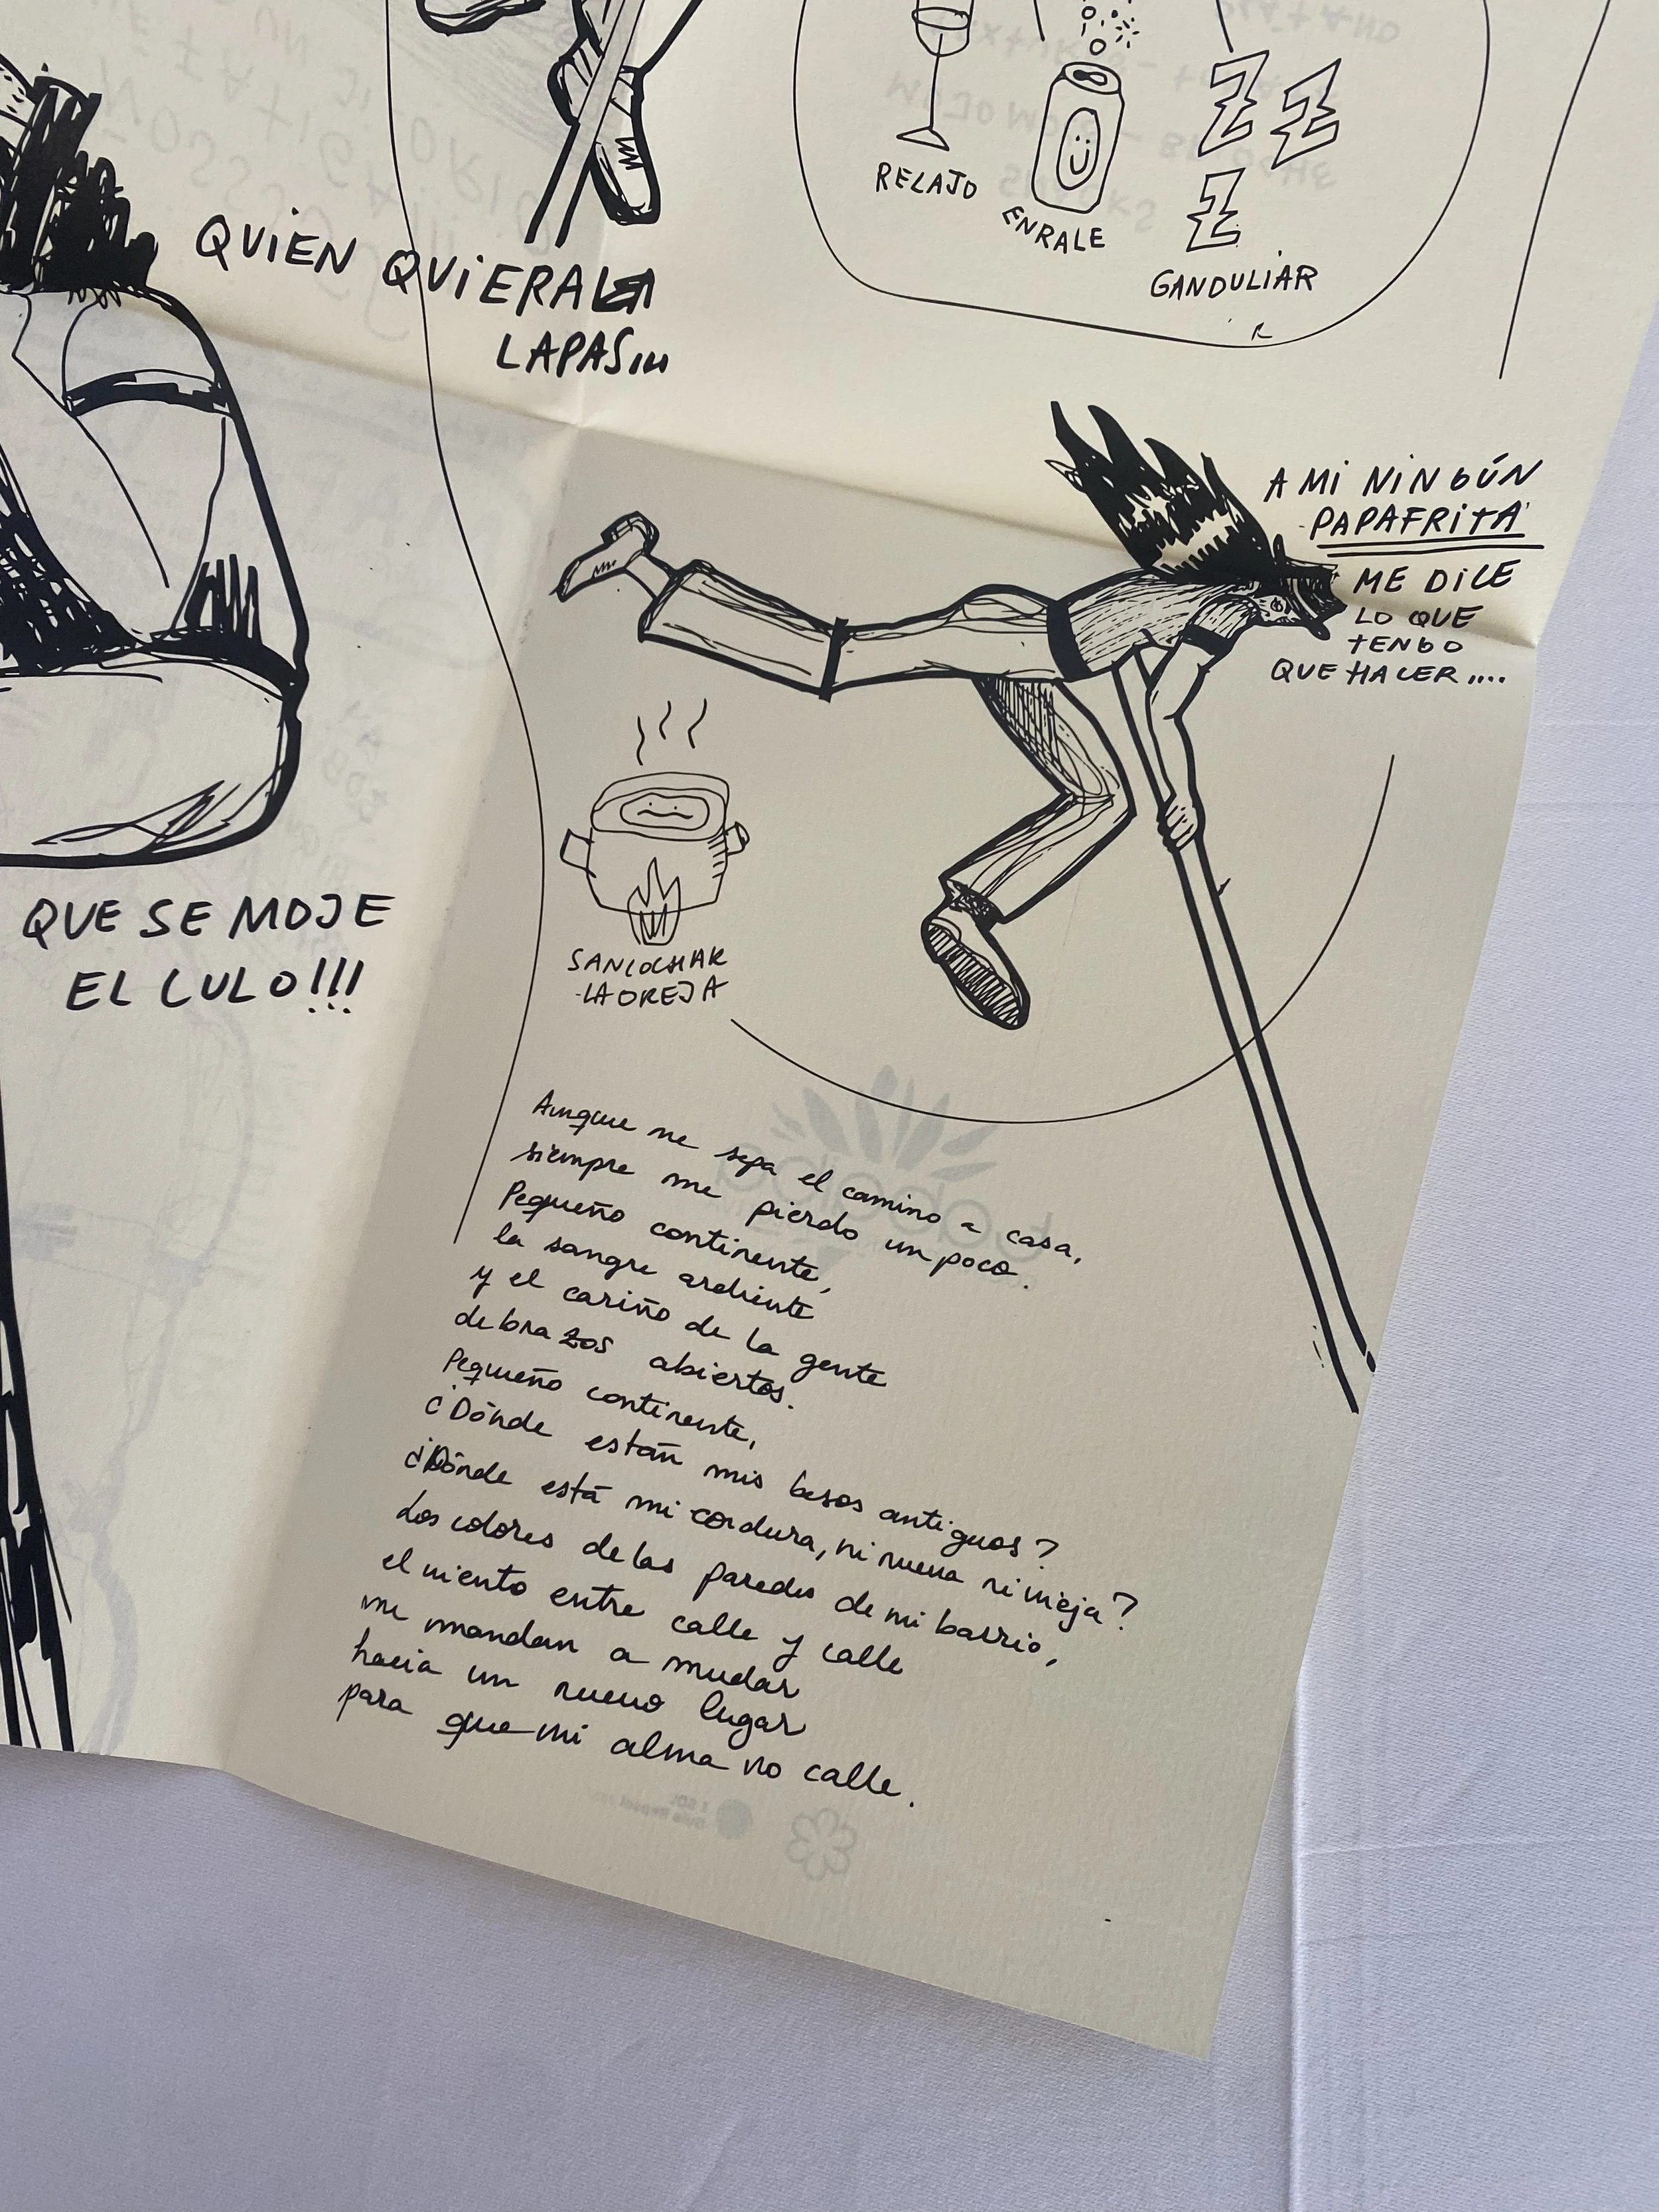 RELAJO
ENRALE
Z Z
Z
GANDULIAR
QUIEN QUIERA
LAPAS...
A MI NINGÚN
PAPAFRITA
ME DICE
LO QUE
TENGO
QUE HACER....
QUE SE MOJE
EL CULO!!!
SANCOCHAR
LA OREJA
Aunque me sepa el camino a casa,
siempre me pierdo un poco.
Pequeño continente,
la sangre ardiente
y el cariño de la gente
de brazos abiertos.
Pequeño continente,
¿Dónde están mis besos antiguos?
¿Dónde está mi cordura, ni nueva ni vieja?
Los colores de las paredes de mi barrio,
el viento entre calle y calle
me mandan a mudar
hacia un nuevo lugar
para que mi alma no calle.